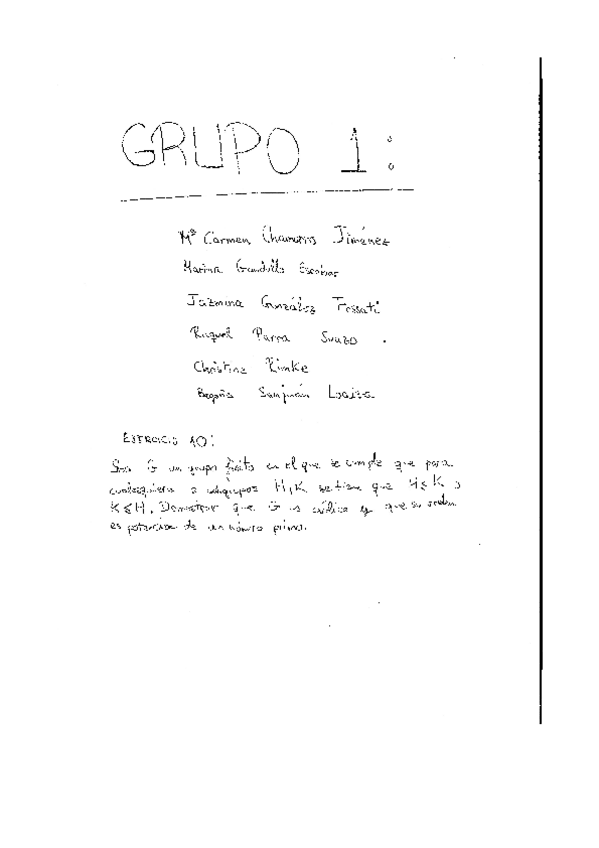 GRUPO 1:
Mª Carmen Chamorro Jiménez
Marina Gordillo Escobar
Jazmina González Tossati
Raquel Parra Suazo.
Christina Rimke
Begoña Sanjuán Loaiza
EJERCICIO 10:
Sea G un grupo finito en el que se cumple que para
cualesquiera 2 subgrupos H, K se tiene que H≤K o
K≤H. Demostrar que G es cíclico y que su orden
es potencia de un número primo.